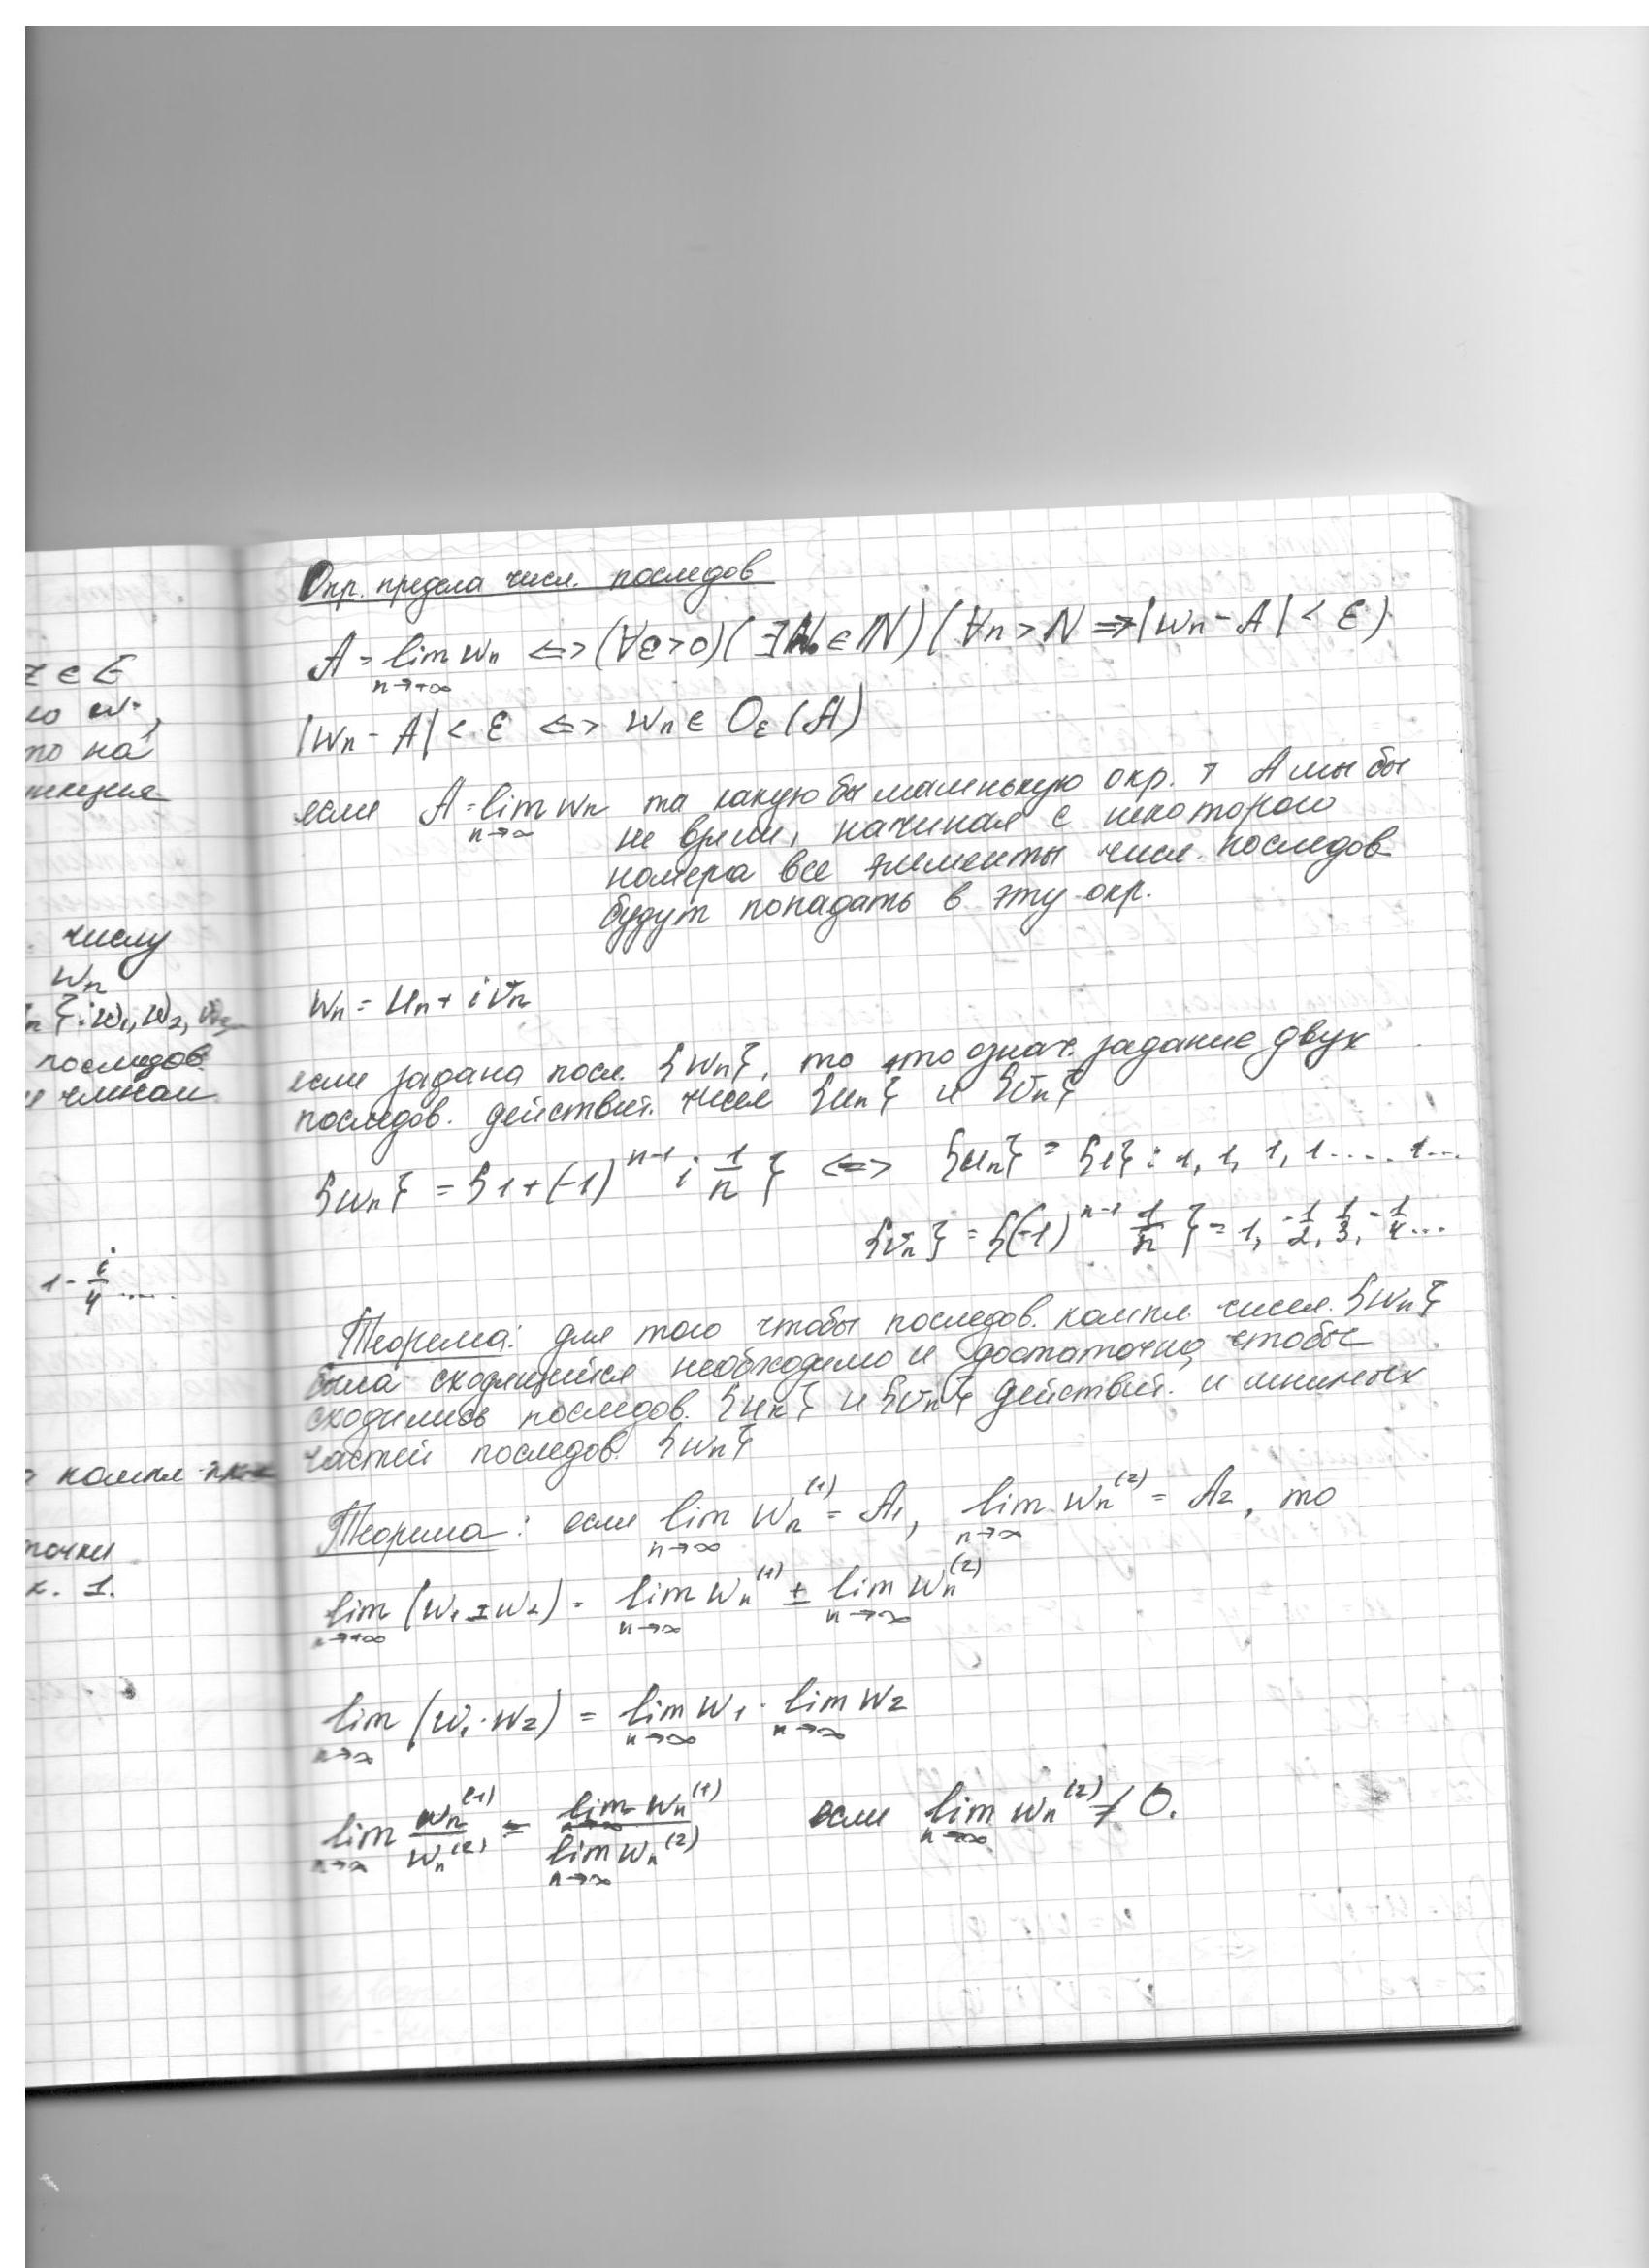 z ∈ E
то на
числу
wₙ
ₙ}: w₁, w₂,
последов.
1 - i/4 ....
компл
точки
1.
Опр. предела числ. последов
A = lim wₙ ⇔ (∀ε>0)(∃N ∈ ℕ)(∀n > N ⇒ |wₙ - A| < ε)
n→+∞
|wₙ - A| < ε ⇔ wₙ ∈ O_ε(A)
если A = lim wₙ та какую бы маленькую окр. т A мы бы
n→∞ не взяли, начиная с некоторого
номера все элементы числ. последов
будут попадать в эту окр.
wₙ = uₙ + ivₙ
если задана посл. {wₙ}, то это означ. задание двух
последов. действит. чисел {uₙ} и {vₙ}
{wₙ} = {1+(-1)ⁿ⁻¹ i 1/n} ⇔ {uₙ} = {1} : 1, 1, 1, 1 .... 1...
{vₙ} = {(-1)ⁿ⁻¹ 1/n} = 1, -1/2, 1/3, -1/4 ...
Теорема: для того чтобы последов. компл. чисел. {wₙ}
была сходящейся необходимо и достаточно, чтобы
сходились последов. {uₙ} и {vₙ} действит. и мнимых
частей последов. {wₙ}
Теорема: если lim wₙ⁽¹⁾ = A₁, lim wₙ⁽²⁾ = A₂, то
n→∞ n→∞
lim (w₁ ± w₂) = lim wₙ⁽¹⁾ ± lim wₙ⁽²⁾
n→+∞ n→∞ n→∞
lim (w₁ · w₂) = lim w₁ · lim w₂
n→∞ n→∞ n→∞
lim wₙ⁽¹⁾/wₙ⁽²⁾ = lim wₙ⁽¹⁾/lim wₙ⁽²⁾ если lim wₙ⁽²⁾ ≠ 0.
n→∞ n→∞ n→∞ n→∞